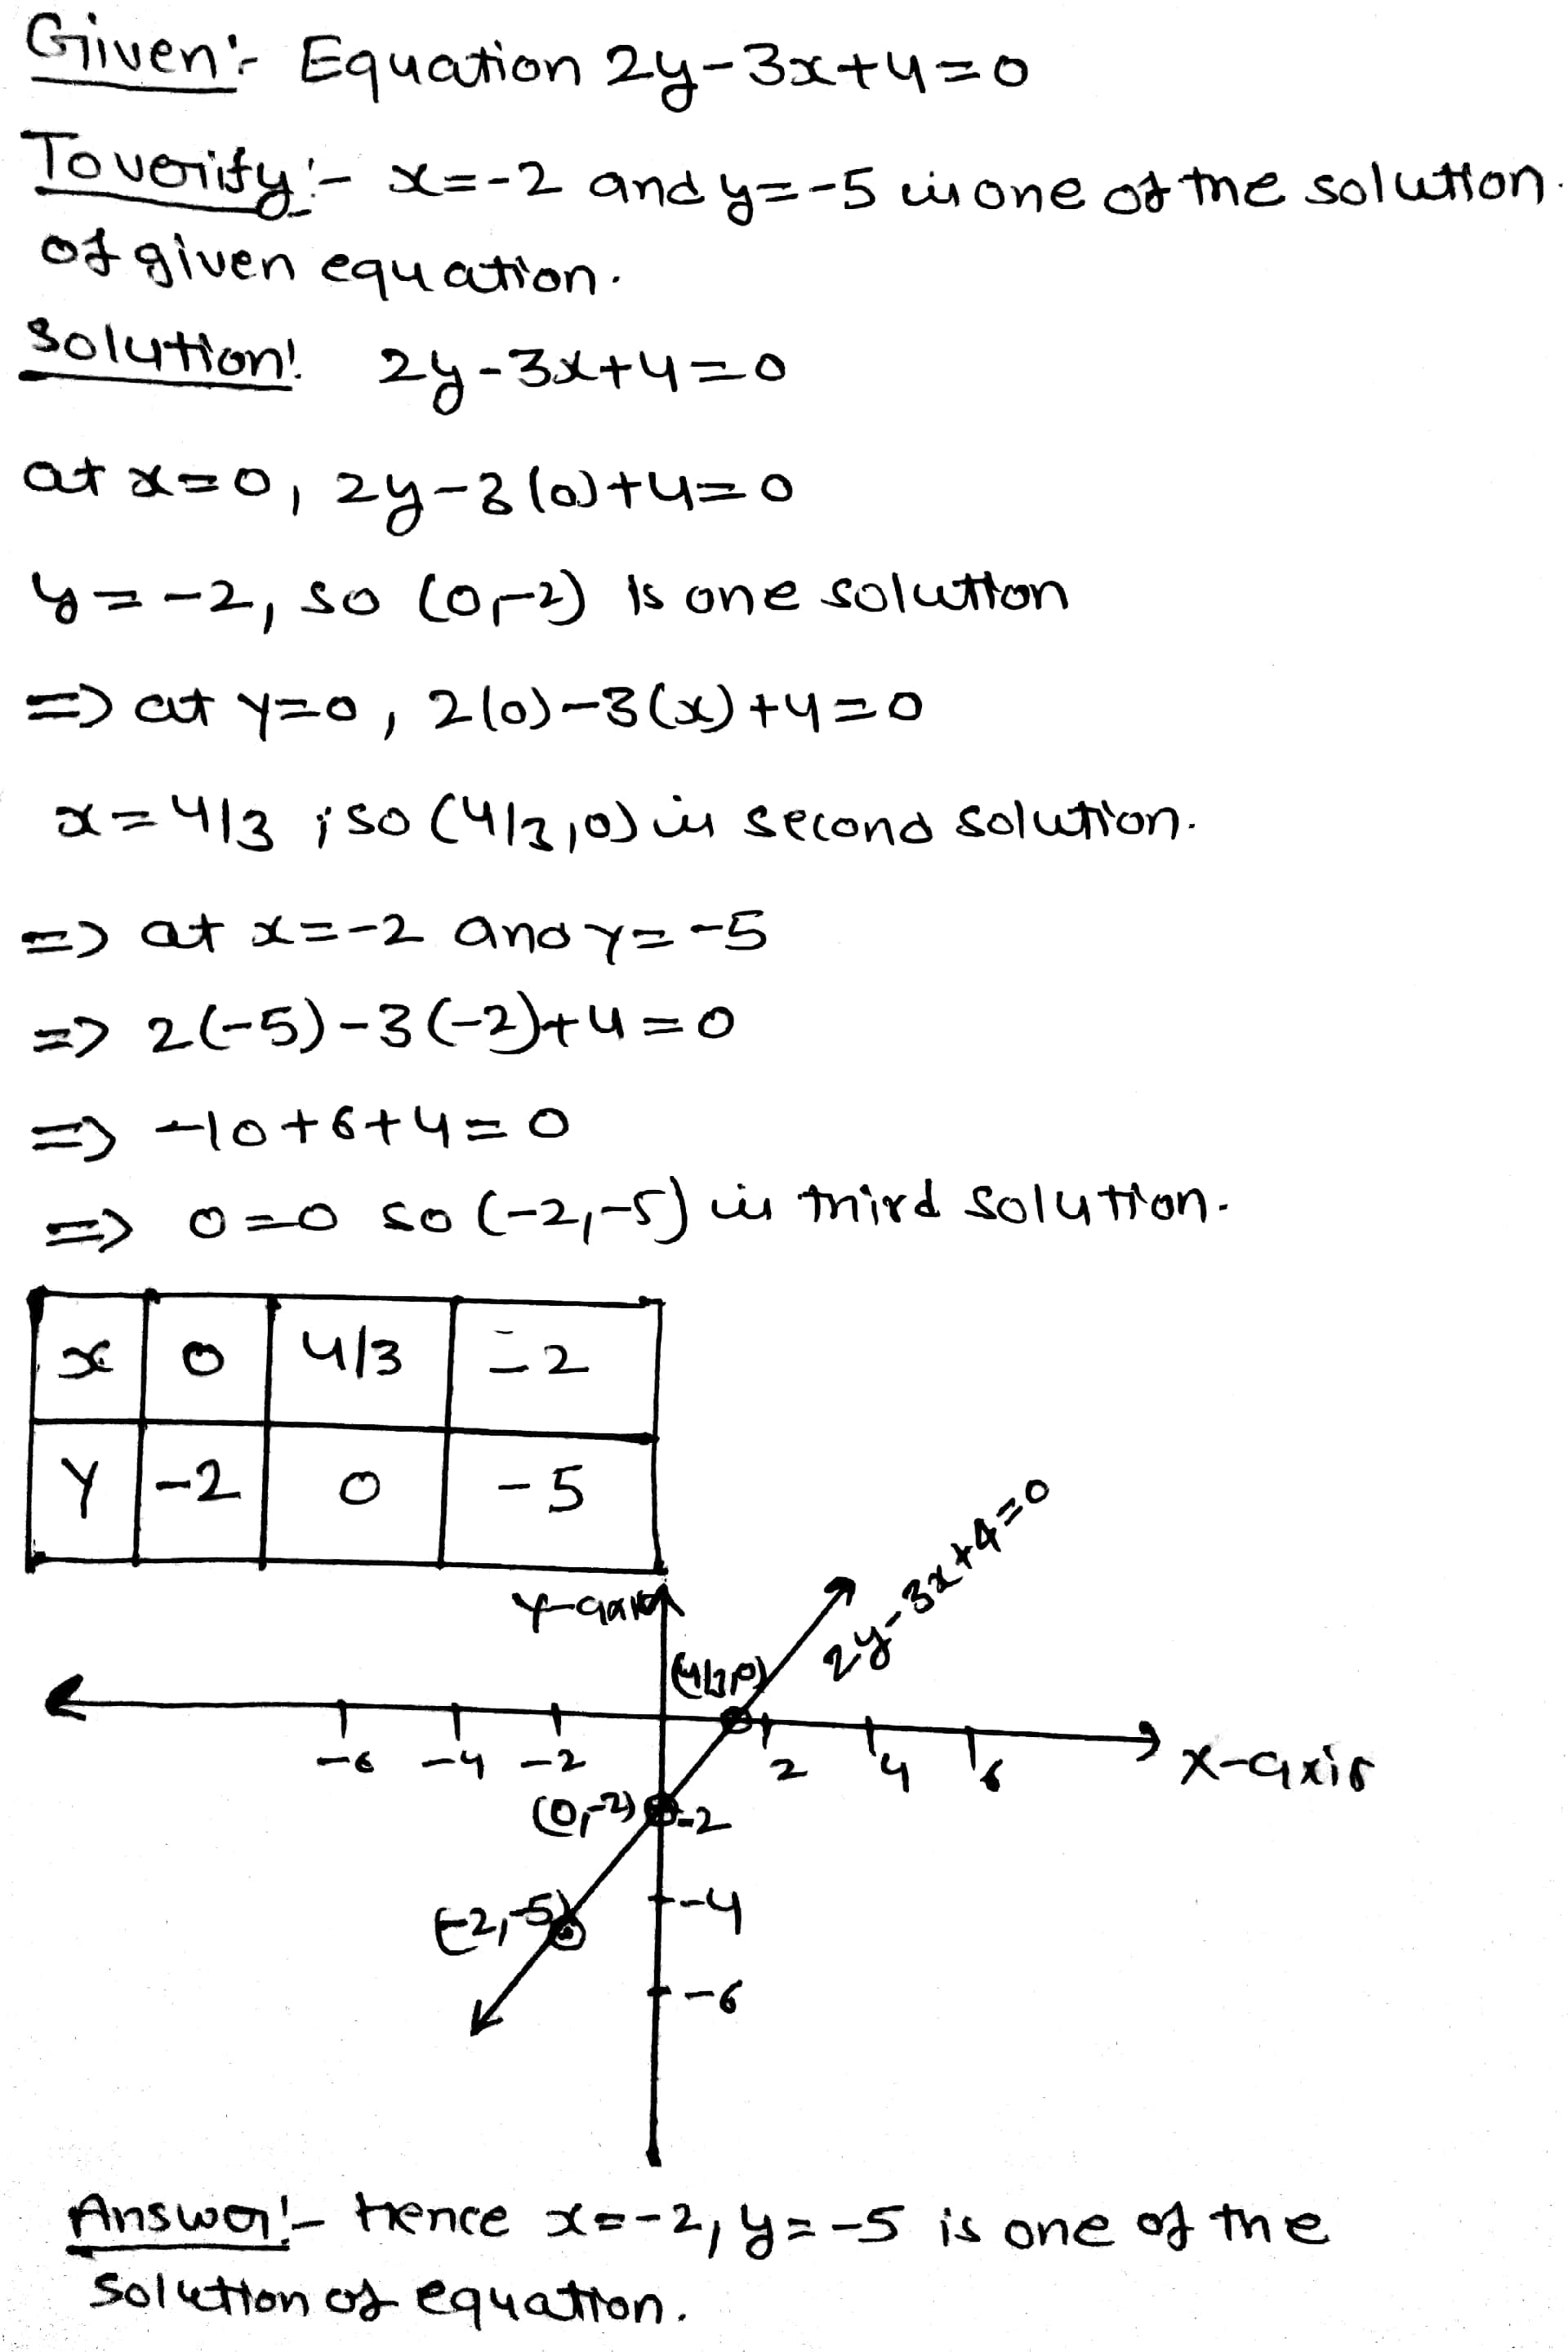 Given:- Equation 2y-3x+4=0
To verify:- x=-2 and y=-5 is one of the solution
of given equation.
Solution: 2y-3x+4=0
at x=0, 2y-3(0)+4=0
y=-2, so (0,-2) is one solution
=> at y=0, 2(0)-3(x)+4=0
x=4/3 ; so (4/3,0) is second solution.
=> at x=-2 and y=-5
=> 2(-5)-3(-2)+4=0
=> -10+6+4=0
=> 0=0 so (-2,-5) is third solution.
x 0 4/3 -2
y -2 0 -5
2y-3x+4=0
Y-axis
(4/3,0)
-6 -4 -2 2 4 6 X-axis
(0,-2) -2
(-2,-5) -4
-6
Answer:- Hence x=-2, y=-5 is one of the
solution of equation.